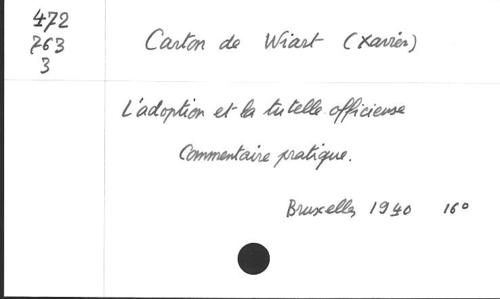 472
763
3
Carton de Wiart (Xavier)
L'adoption et la tutelle officieuse
Commentaire pratique.
Bruxelles 1940 16°